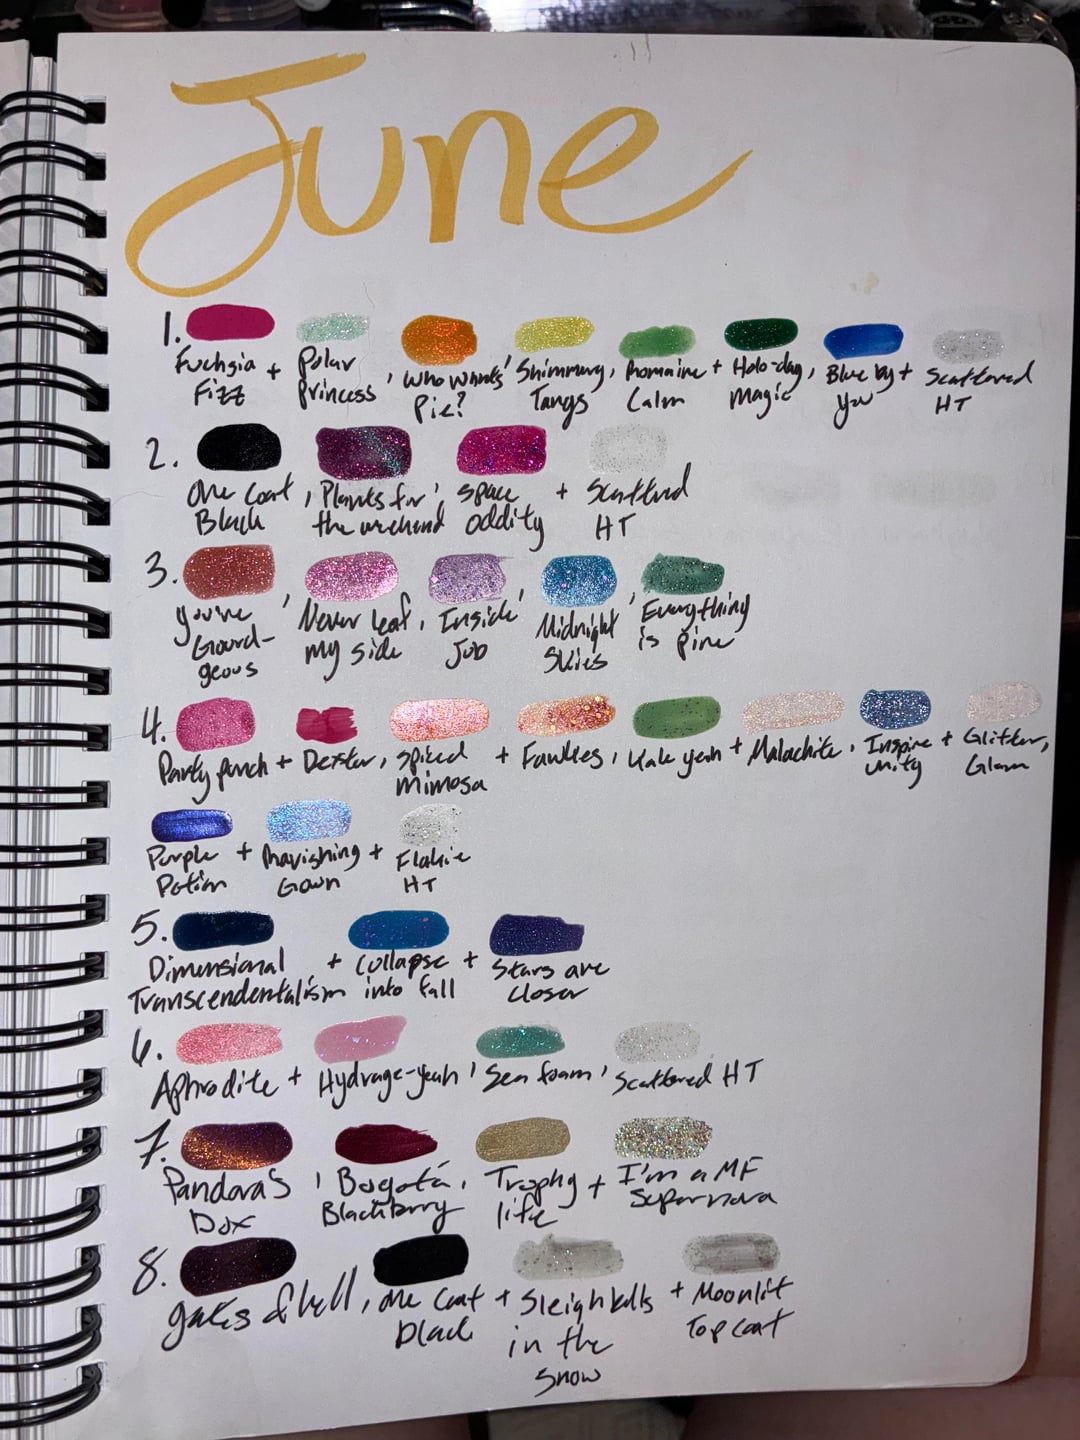 June
1. Fuchsia + Polar , Who Wants , Shimmery, Romaine + Holo-day, Blue by + Scattered
Fizz Princess Pie? Tangs Calm Magic you HT
2. One Coat , Plants for , Space + Scattered
Black the weekend oddity HT
3. You're , Never leaf , Inside , Midnight , Everything
Gourd- my side Job Skies is pine
geous
4. Party punch + Dexter, Spiced + Fawkes, Kale yeah + Malachite, Inspire + Glitter,
mimosa unity Glam
Purple + Ravishing + Flakie
Potion Gown HT
5. Dimensional + Collapse + Stars are
Transcendentalism into fall closer
6. Aphrodite + Hydrage-yeah , Sea foam , Scattered HT
7. Pandora's , Bogotá , Trophy + I'm a MF
Box Blackberry life Supernova
8. gates of hell, one coat + Sleighbells + Moonlit
black in the Top coat
Snow